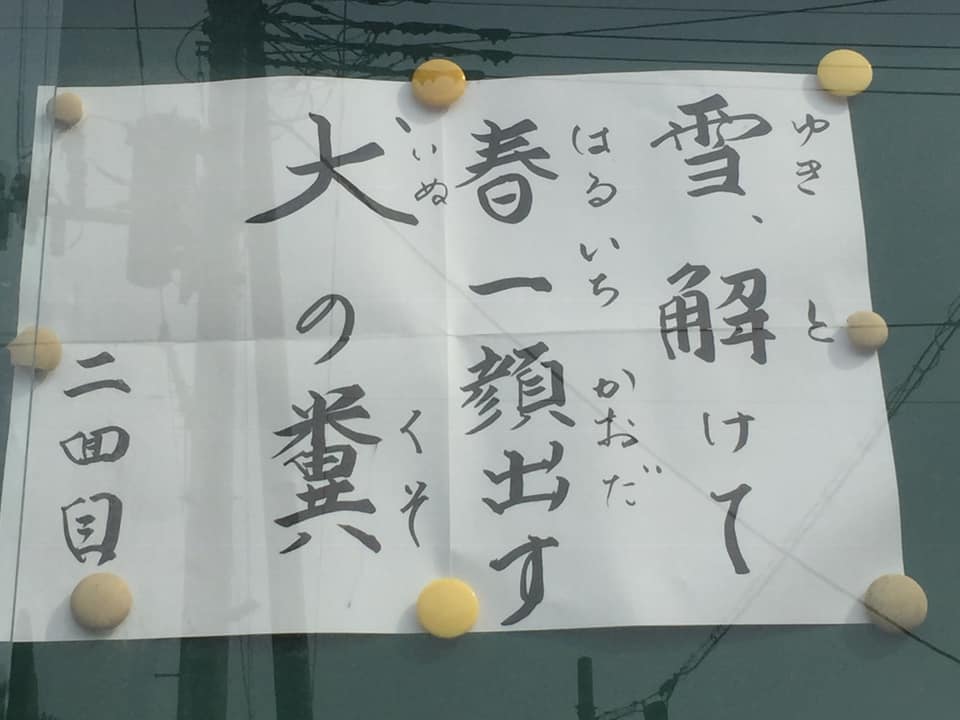 ゆき と
雪、解けて
はるいち かおだ
春一顔出す
いぬ くそ
犬の糞
二回目